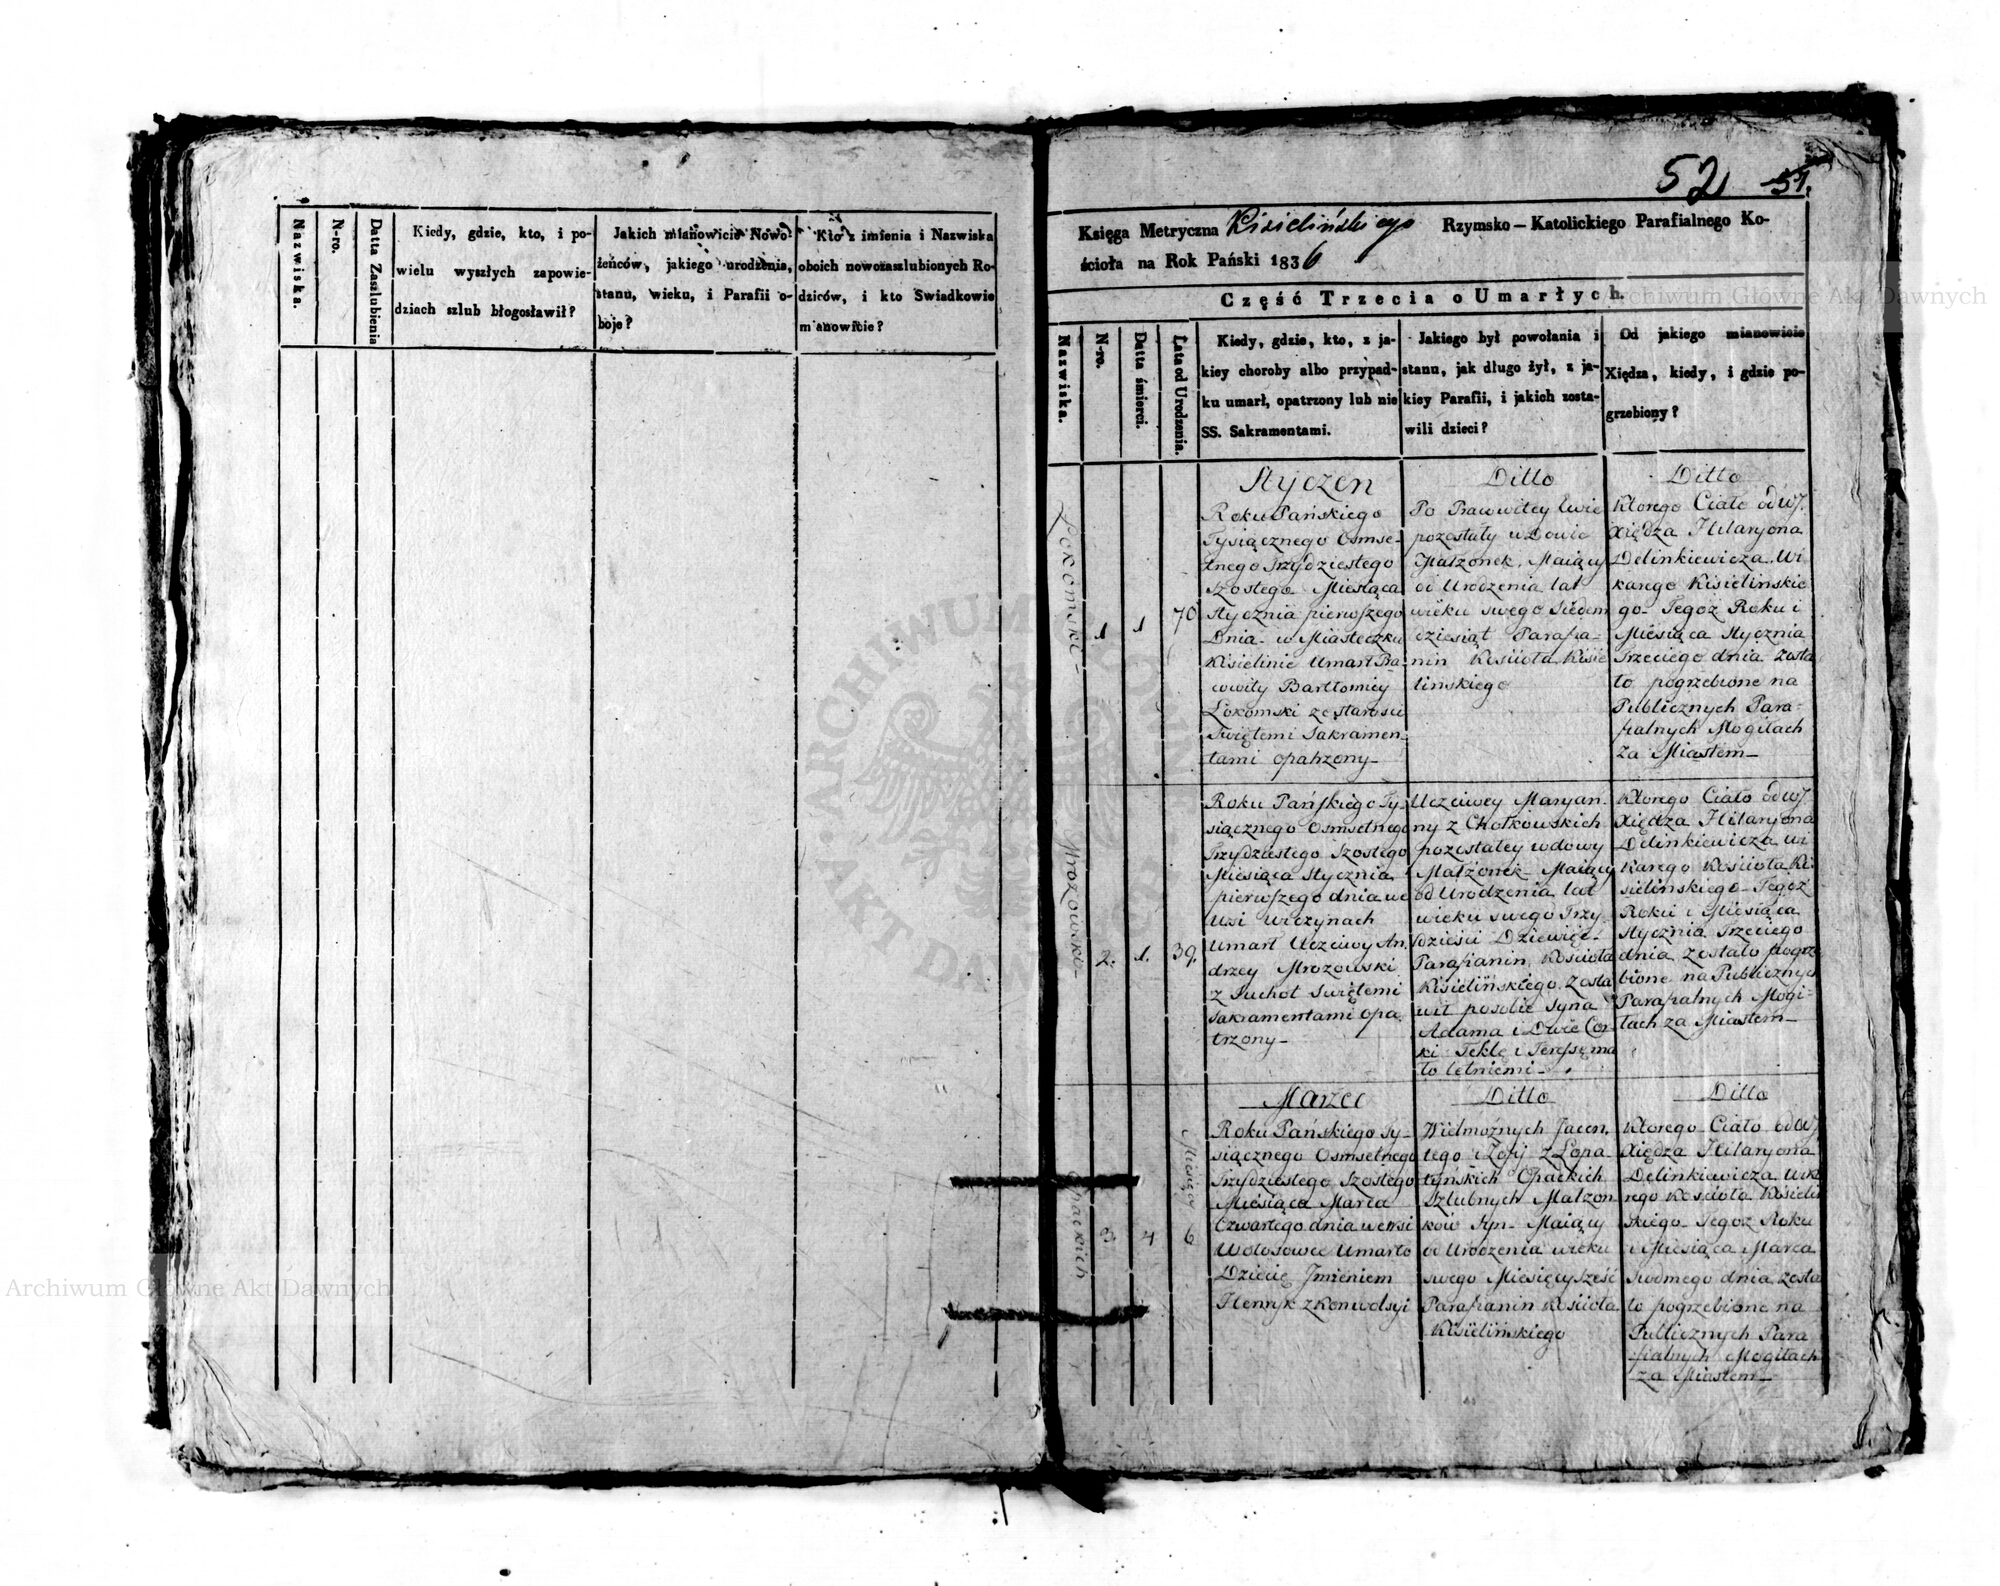 Nazwiska.
N-ro.
Datta Zaszlubienia
Kiedy, gdzie, kto, i po-
wielu wyszłych zapowie-
dziach szlub błogosławił?
Jakich mianowicie Nowo-
żeńców, jakiego urodzenia,
stanu, wieku, i Parafii o-
boje?
Kto z imienia i Nazwiska
oboich nowozaszlubionych Ro-
dziców, i kto Swiadkowie
mianowicie?
52 51.
Księga Metryczna Kisielińskiego Rzymsko-Katolickiego Parafialnego Ko-
ścioła na Rok Pański 1836
Część Trzecia o Umarłych.
Nazwiska.
N-ro.
Datta śmierci.
Lata od Urodzenia.
Kiedy, gdzie, kto, z ja-
kiey choroby albo przypad-
ku umarł, opatrzony lub nie
SS. Sakramentami.
Jakiego był powołania i
stanu, jak długo żył, z ja-
kiey Parafii, i jakich zosta-
wili dzieci?
Od jakiego mianowicie
Xiędza, kiedy, i gdzie po-
grzebiony?
Łokomski-
1
1
70
Styczen
Roku Pańskiego
Tysiącznego Osmse-
tnego Trzydziestego
Szostego Miesiąca
Stycznia pierwszego
Dnia w Miasteczku
Kisielinie Umarł Pra-
cowity Bartłomiey
Łokomski ze starosci
Swiętemi Sakramen-
tami opatrzony-
Ditto
Po Pracowitey Ewie
pozostały wdowie
Małzonek, Maiący
od Urodzenia lat
wieku swego Siedem
dziesiąt Parafia-
nin Kościoła Kisie
linskiego
Ditto
Ktorego Ciało od WJ.
Xiędza Hilaryona
Delinkiewicza Wi
karego Kisielinskie
go Tegoz Roku i
Miesiąca Stycznia
Trzeciego dnia zosta
ło pogrzebione na
Publicznych Para-
fialnych Mogiłach
Za Miastem-
Mrozowski-
2.
1.
39.
Roku Pańskiego Ty-
siącznego Osmsetnego
Trzydziestego Szostego
Miesiąca Stycznia
pierwszego dnia we
Wsi Wiczynach
Umarł Uczciwy An.
drzey Mrozowski
z Suchot Swiętemi
Sakramentami opa.
trzony-
Uczciwey Maryan.
ny z Chołkowskich
pozostałey wdowy
Małżonek- Maiący
od Urodzenia lat
wieku swego Trzy
dzieści Dziewięć-
Parafianin Kościoła
Kisielińskiego. Zosta
wił posobie Syna
Adama i Dwie Cor-
ki Teklę i Teressę ma
ło letniemi-
Ktorego Ciało od WJ.
Xiędza Hilaryona
Delinkiewicza Wi
karego Kościoła Ki
sielinskiego- Tegoż
Roku i Miesiąca
Stycznia Trzeciego
dnia Zostało pogrze
bione na Publicznych
Parafialnych Mogi-
łach za Miastem-
Opackich
3
4
Miesięcy
6
Marzec
Roku Pańskiego Ty-
siącznego Osmsetnego
Trzydziestego Szostego
Miesiąca Marca
Czwartego dnia we wsi
Wołosowce Umarło
Dziecię Imieniem
Henryk z Konwolsyi
Ditto
Wielmożnych Jacen.
tego i Zofij z Łopa-
tyńskich Opackich
Szlubnych Małzon
ków Syn- Maiący
od Urodzenia wieku
swego Miesięcy sześć
Parafianin Kościoła
Kisielińskiego
Ditto
Ktorego Ciało od WJ
Xiędza Hilaryona
Delinkiewicza Wika
rego Kościoła Kisieliń
skiego- Tegoz Roku
i Miesiąca Marca
Siodmego dnia zosta
ło pogrzebione na
Publicznych Para
fialnych Mogiłach
za Miastem-
Archiwum Główne Akt Dawnych
Archiwum Główne Akt Dawnych